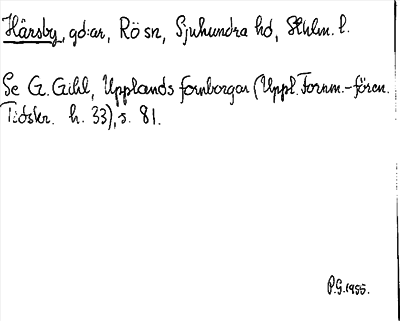 Härsby, gd:ar, Rö sn, Sjuhundra hd, Sthlm. l.
Se G. Gihl, Upplands fornborgar (Uppl. Fornm.-fören.
Tidskr. h. 33), s. 81.
P.G. 1955.